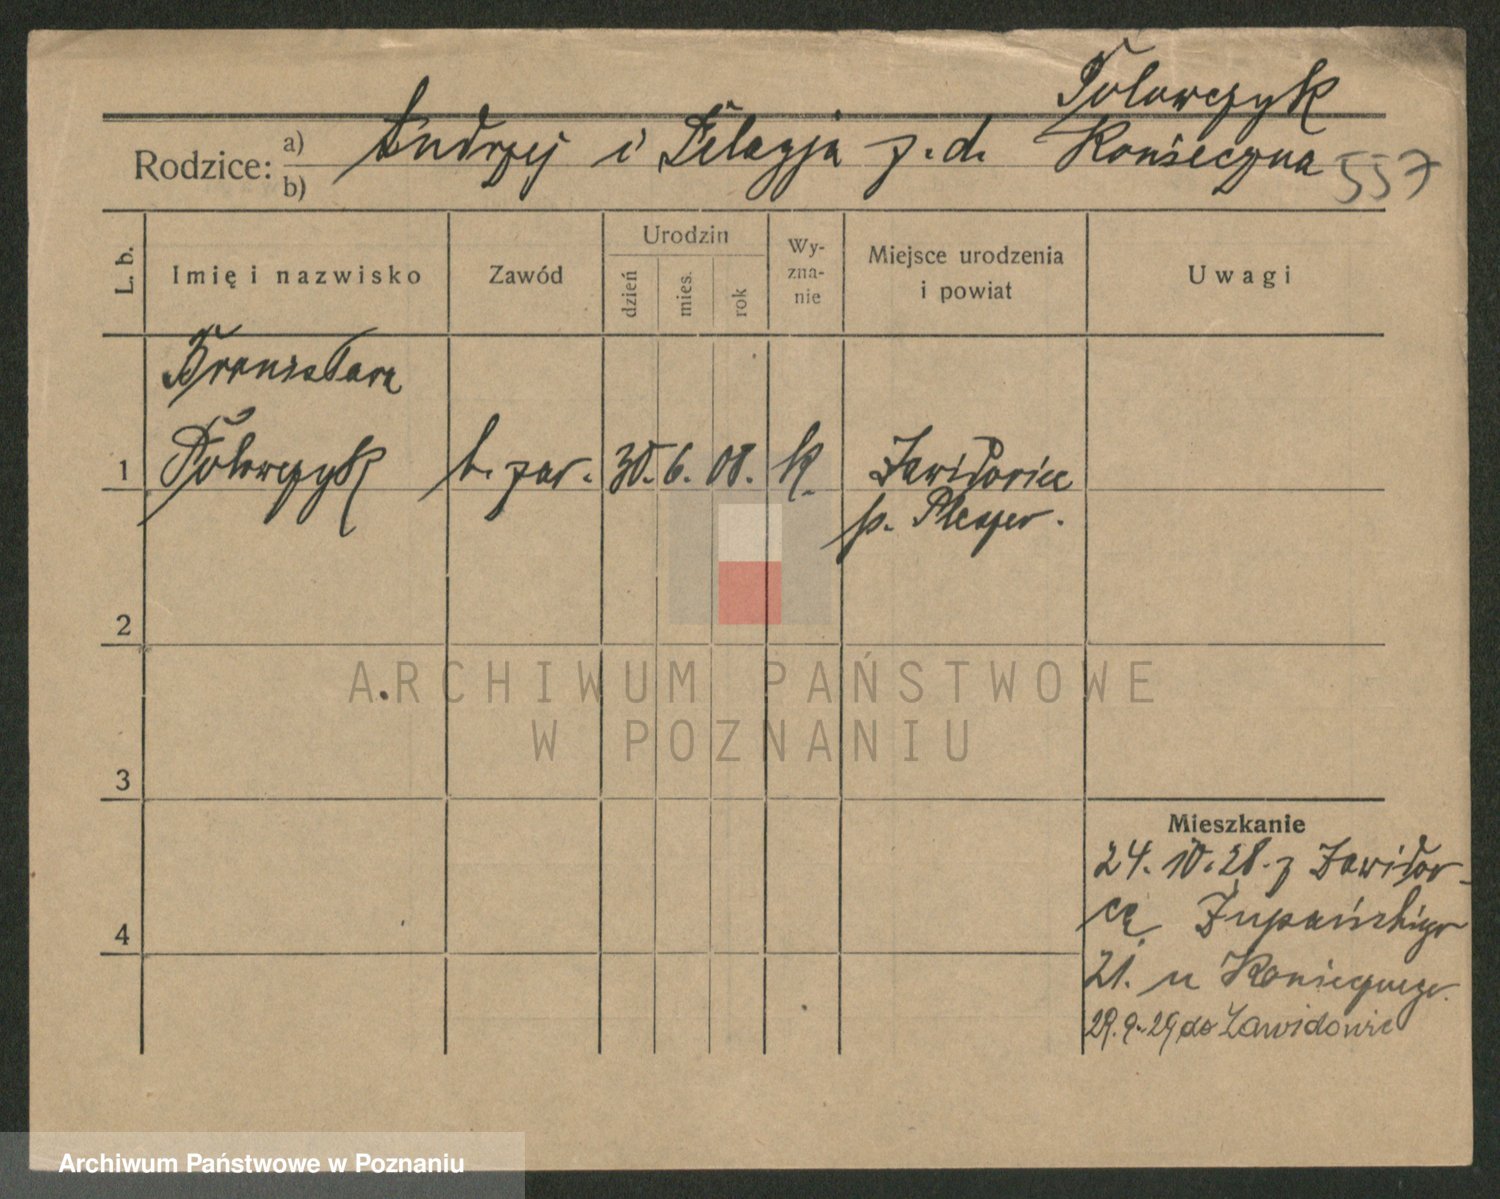 Tolowczyk
Rodzice: a) Andrzej i Pelagja z.d. Konieczna 557
b)
L. b.
Imię i nazwisko
Zawód
Urodzin
dzień
mies.
rok
Wy-
zna-
nie
Miejsce urodzenia
i powiat
Uwagi
Bronisława
1 Tolowczyk b. zar. 30. 6. 08. k. Zawidowice
p. Pleszew.
2
3
4
Mieszkanie
24. 10. 28. z Zawidow-
ic Żupańskiego
21. u Koniecznego.
29.9.29 do Zawidowic
ARCHIWUM PAŃSTWOWE
W POZNANIU
Archiwum Państwowe w Poznaniu